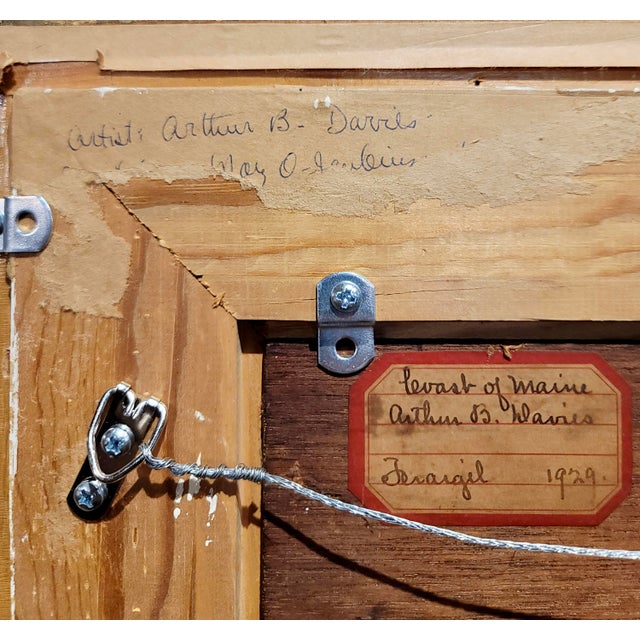 Artist: Arthur B. Davies
Coast of Maine
Arthur B. Davies
Ferargil 1929.